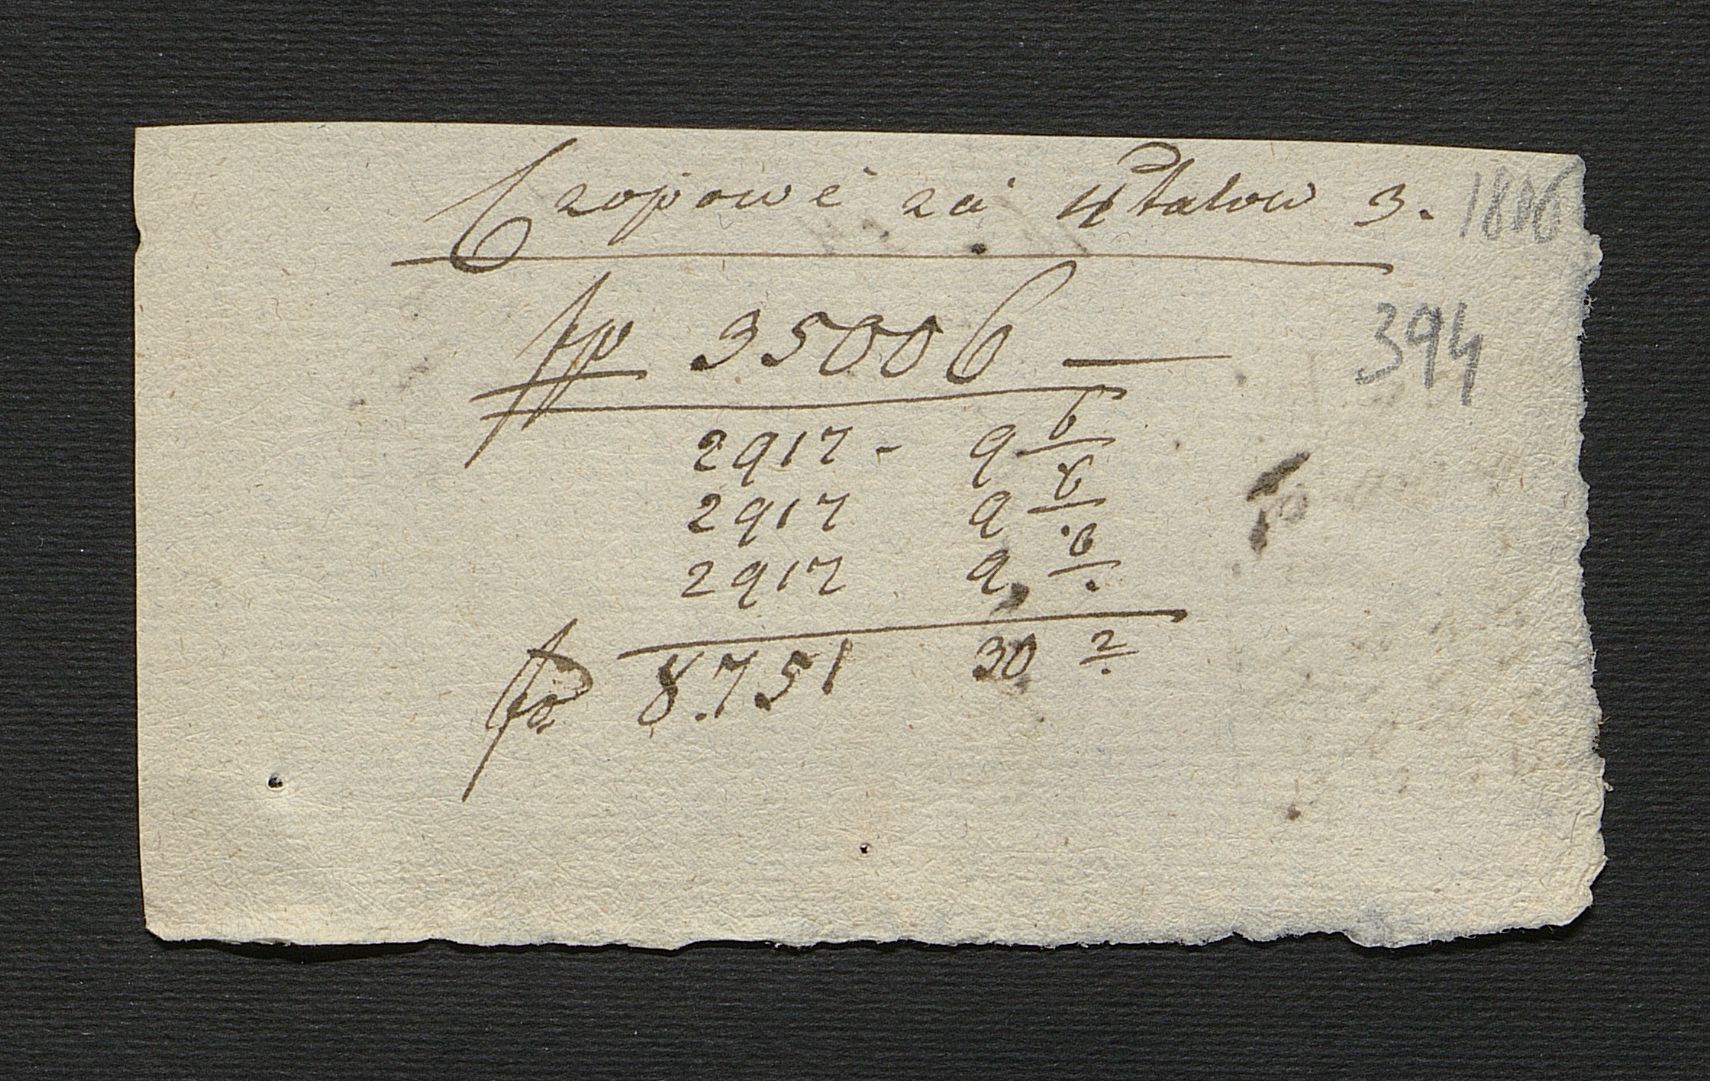 Czopowe za 4 Ratow 3. 1806
fp 35006 —
394
2917 - 9 6
2917 9 6
2917 9 6
fp 8.751 30 2